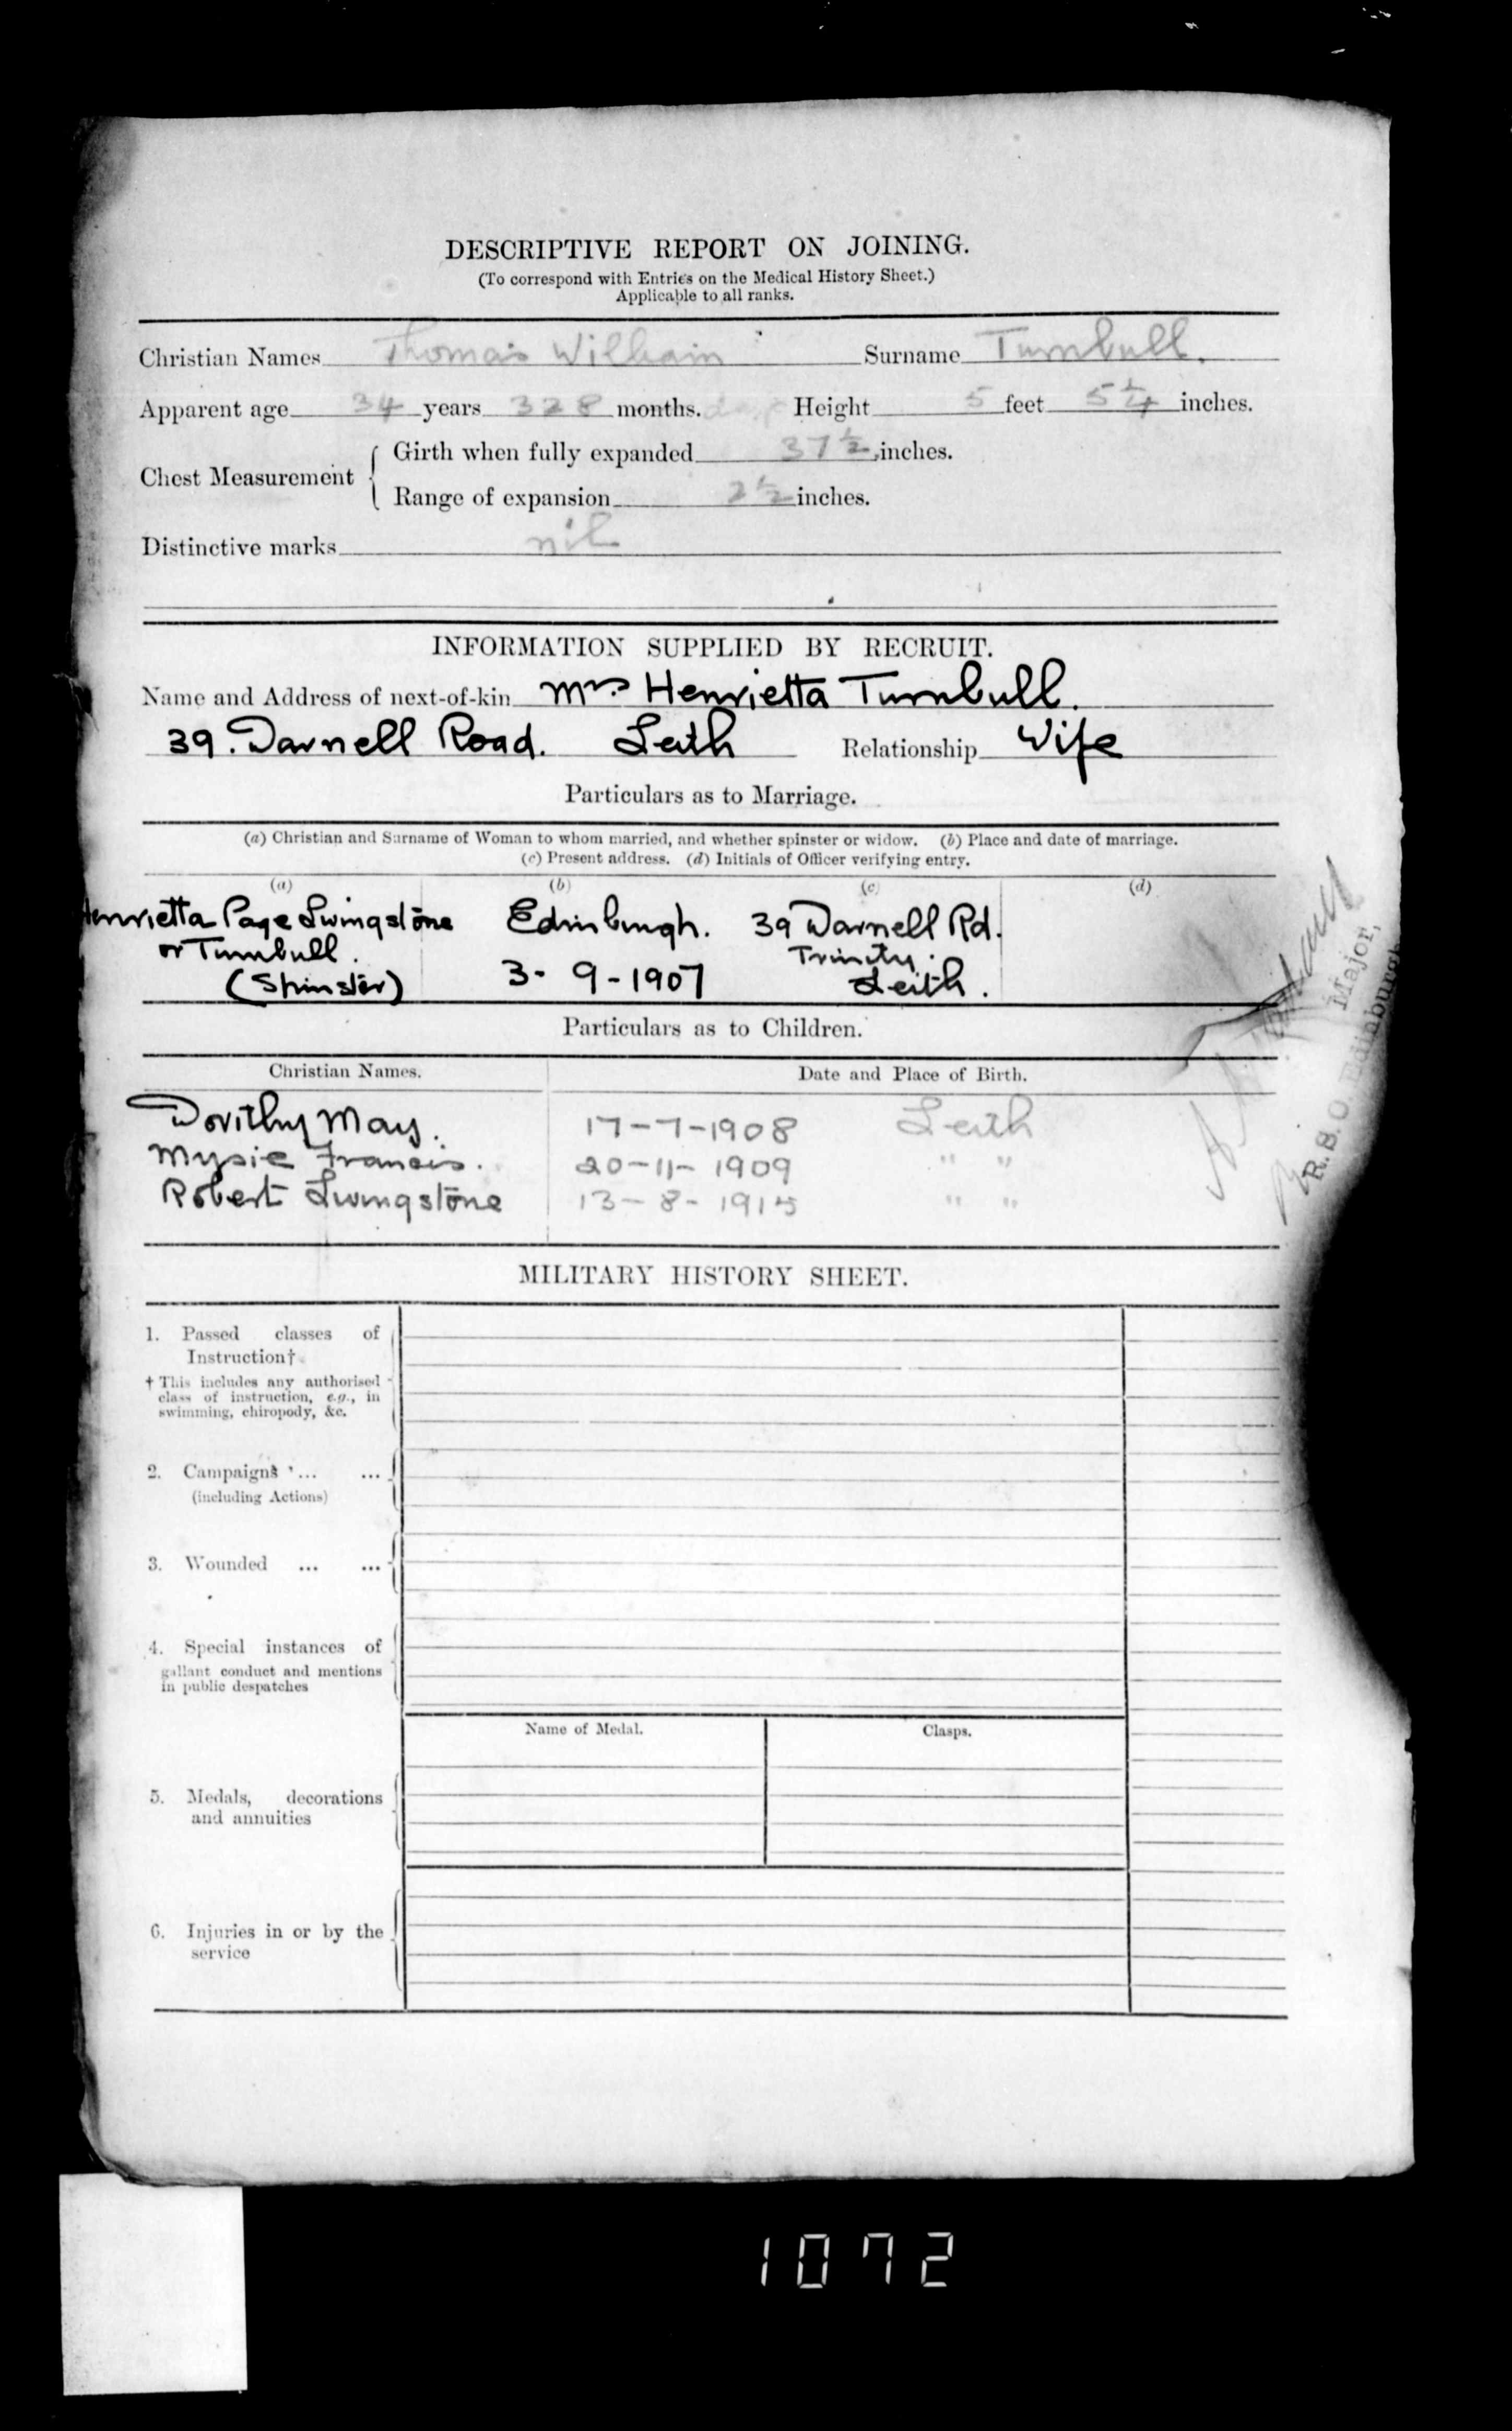 DESCRIPTIVE REPORT ON JOINING.
(To correspond with Entries on the Medical History Sheet.)
Applicable to all ranks.
Christian Names Thomas William Surname Turnbull.
Apparent age 34 years 328 months. days Height 5 feet 5 1/4 inches.
Chest Measurement { Girth when fully expanded 37 1/2 inches.
Range of expansion 2 1/2 inches.
Distinctive marks nil
INFORMATION SUPPLIED BY RECRUIT.
Name and Address of next-of-kin Mrs. Henrietta Turnbull.
39. Darnell Road. Leith Relationship Wife
Particulars as to Marriage.
(a) Christian and Surname of Woman to whom married, and whether spinster or widow. (b) Place and date of marriage.
(c) Present address. (d) Initials of Officer verifying entry.
(a) (b) (c) (d)
Henrietta Page Livingstone Edinburgh. 39 Darnell Rd.
or Turnbull. Trinity.
(Spinster) 3-9-1907 Leith.
Major,
R.S.O. Edinburgh
Particulars as to Children.
Christian Names. Date and Place of Birth.
Dorithy May. 17-7-1908 Leith
Mysie Francis. 20-11-1909 " "
Robert Livingstone 13-8-1915 " "
MILITARY HISTORY SHEET.
1. Passed classes of
Instruction†
† This includes any authorised
class of instruction, e.g., in
swimming, chiropody, &c.
2. Campaigns ... ...
(including Actions)
3. Wounded ... ...
4. Special instances of
gallant conduct and mentions
in public despatches
Name of Medal. Clasps.
5. Medals, decorations
and annuities
6. Injuries in or by the
service
1072